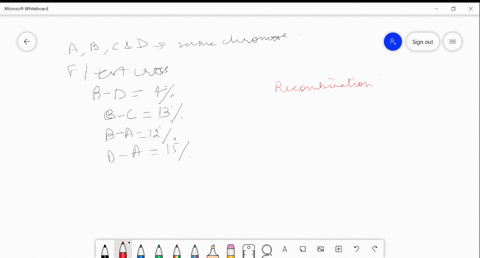 Microsoft Whiteboard
Sign out
A, B, C & D → same chromose
F1 test cross
B-D = 4%
B-C = 13%
B-A = 12%
D-A = 15%
Recombination